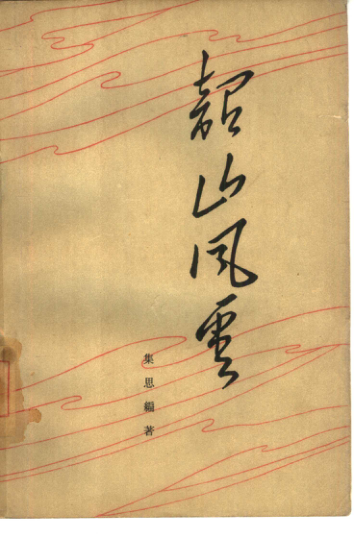 韶山风雲
集思編著